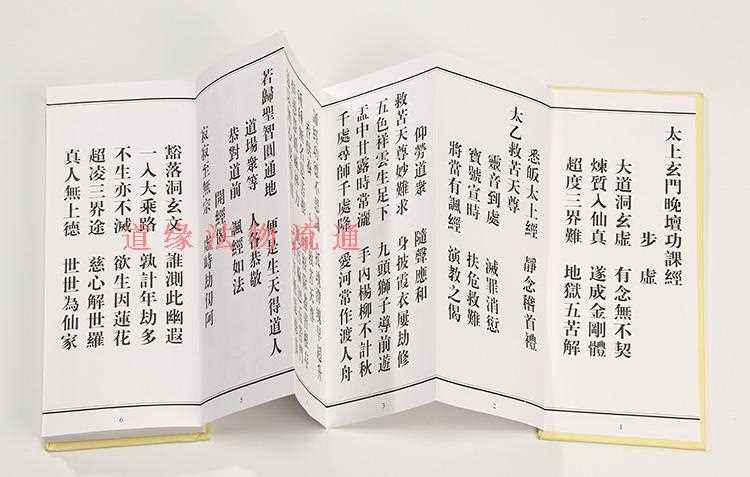 太上玄門晚壇功課經
步虛
大道洞玄虛 有念無不契
煉質入仙真 遂成金剛體
超度三界難 地獄五苦解
1
悉皈太上經 靜念稽首禮
太乙救苦天尊
靈音到處 滅罪消愆
寶號宣時 扶危救難
將當有諷經 演教之偈
2
仰勞道衆 隨聲應和
救苦天尊妙難求 身披霞衣屢劫修
五色祥雲生足下 九頭獅子導前遊
盂中甘露時常灑 手內楊柳不計秋
千處尋師千處降 愛河常作渡人舟
3
若歸聖智圓通地 便是生天得道人
道場衆等 人各恭敬
恭對道前 諷經如法
開經偈
寂寂至無宗 虛峙劫仞阿
5
豁落洞玄文 誰測此幽遐
一入大乘路 孰計年劫多
不生亦不滅 欲生因蓮花
超凌三界途 慈心解世羅
真人無上德 世世為仙家
6
道缘法物流通